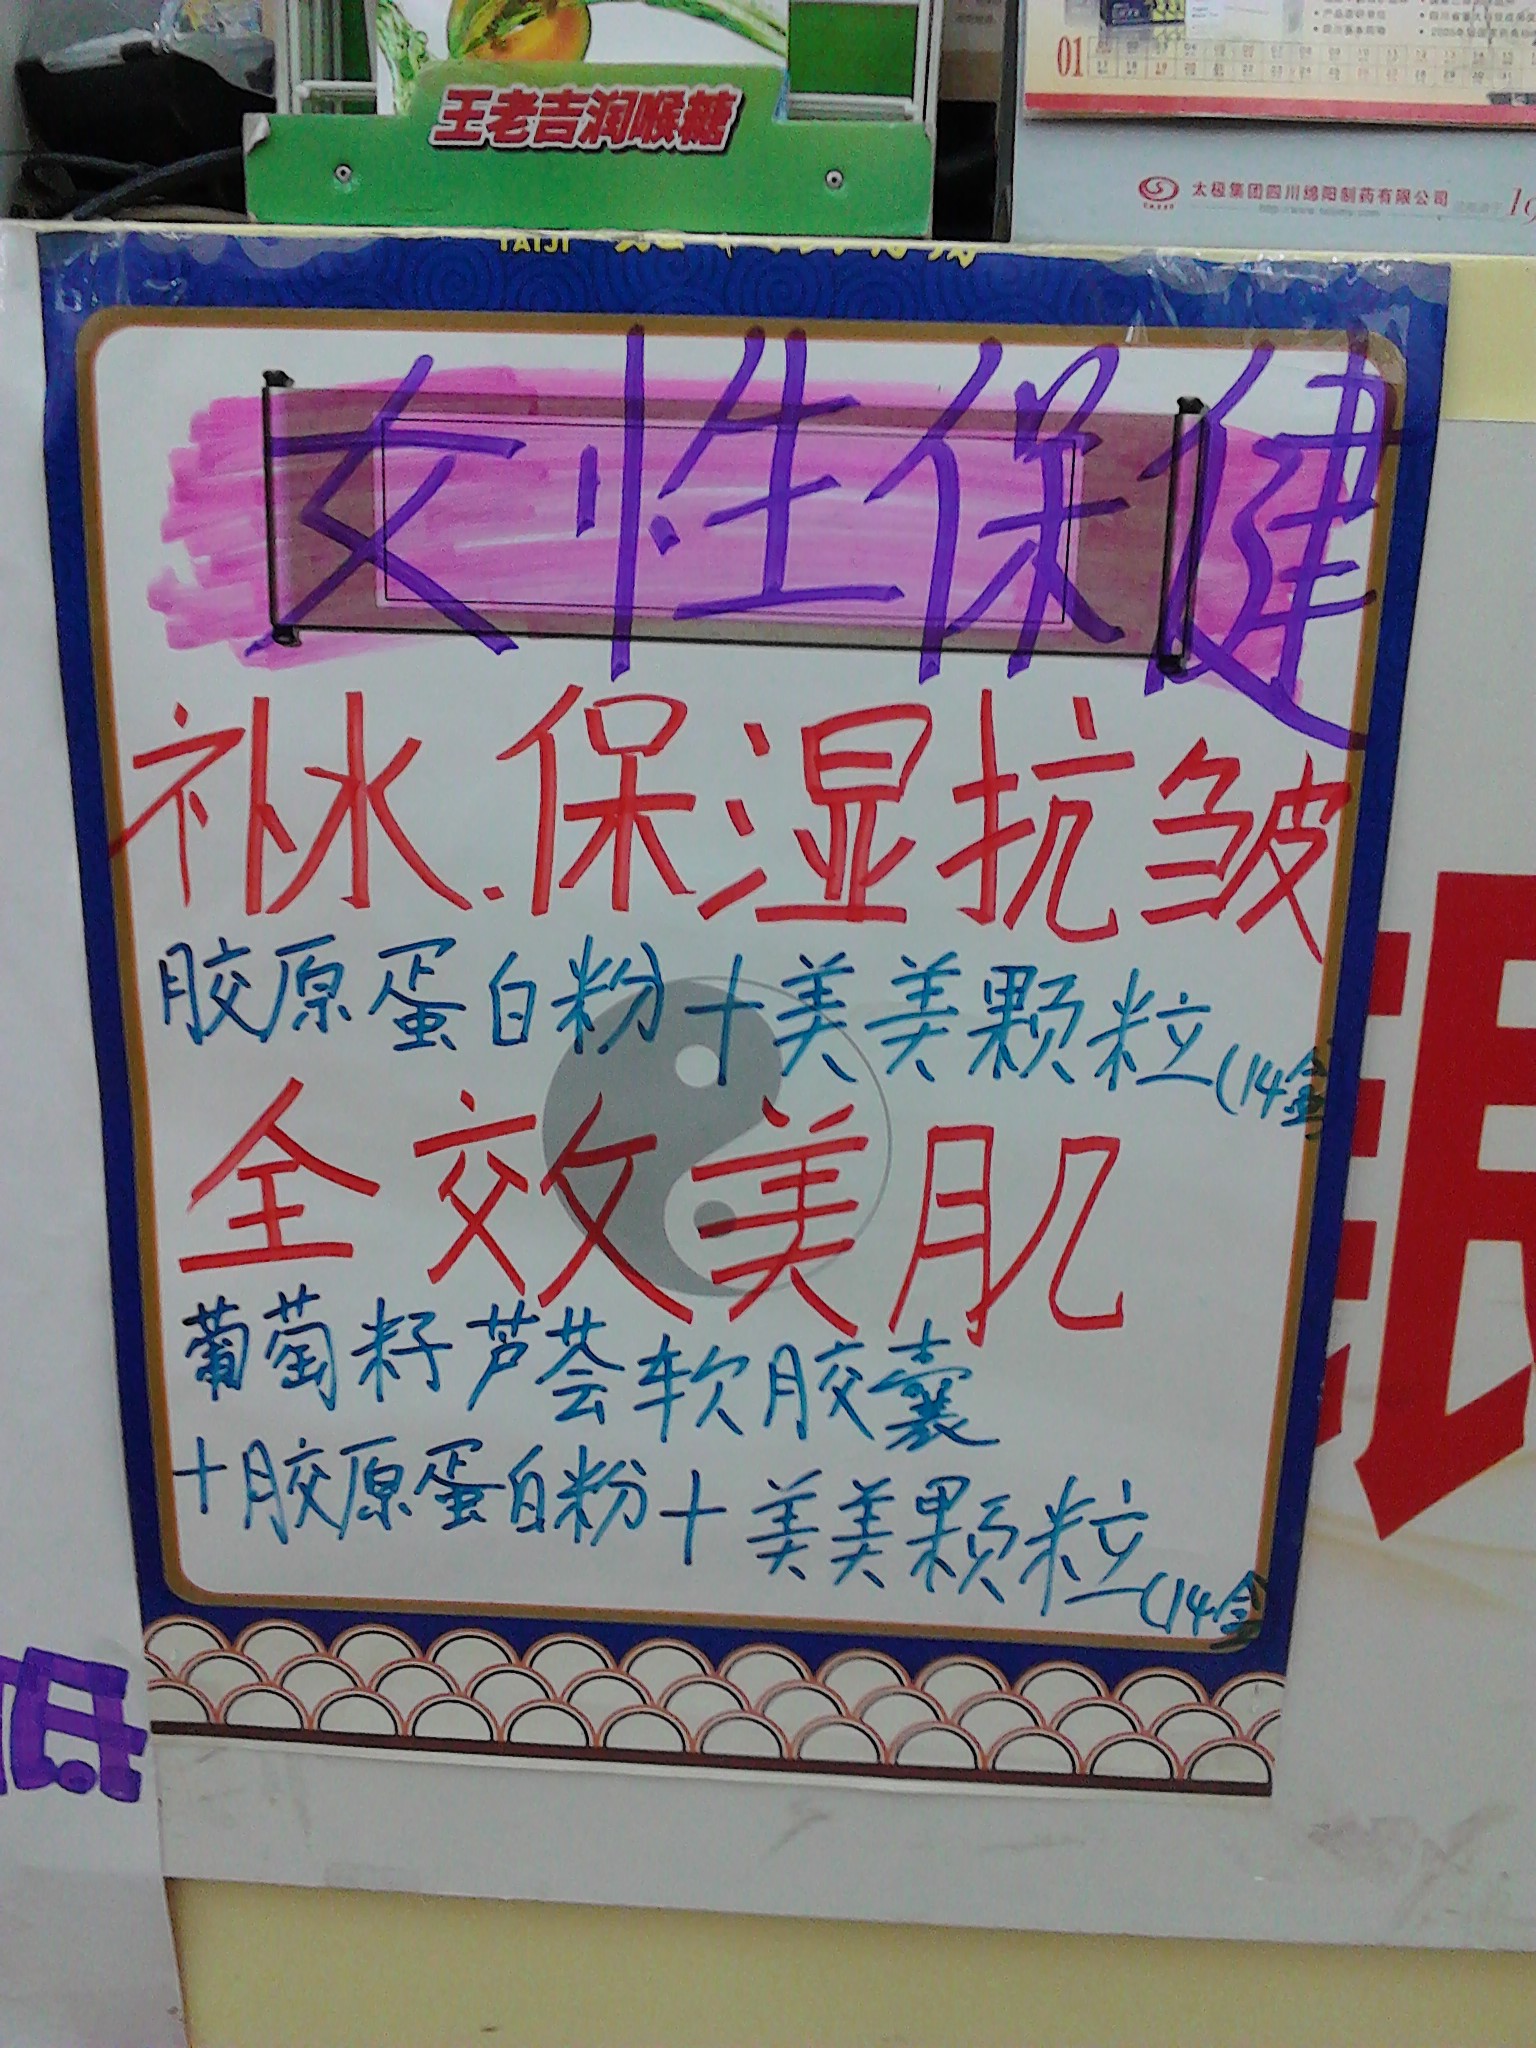 王老吉润喉糖
01
太极集团四川绵阳制药有限公司
TAIJI
女性保健
补水.保湿抗皱
胶原蛋白粉+美美颗粒(14盒
全效美肌
葡萄籽芦荟软胶囊
+胶原蛋白粉+美美颗粒(14盒
低